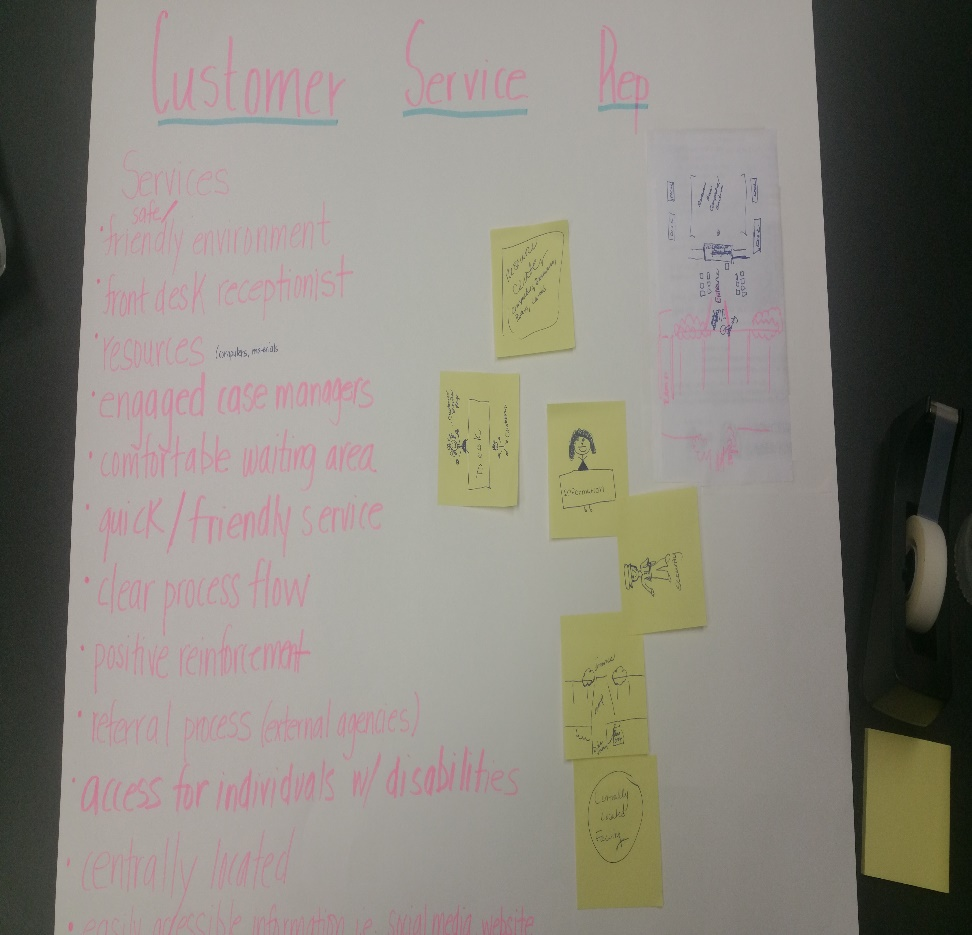 Customer Service Rep
Services
safe/
• friendly environment
• front desk receptionist
• resources computers, materials
• engaged case managers
• comfortable waiting area
• quick/friendly service
• clear process flow
• positive reinforcement
• referral process (external agencies)
• access for individuals w/ disabilities
• centrally located
• easily accessible information i.e. social media, website
Resource
Center
Information
Security
Centrally
Located
Entrance